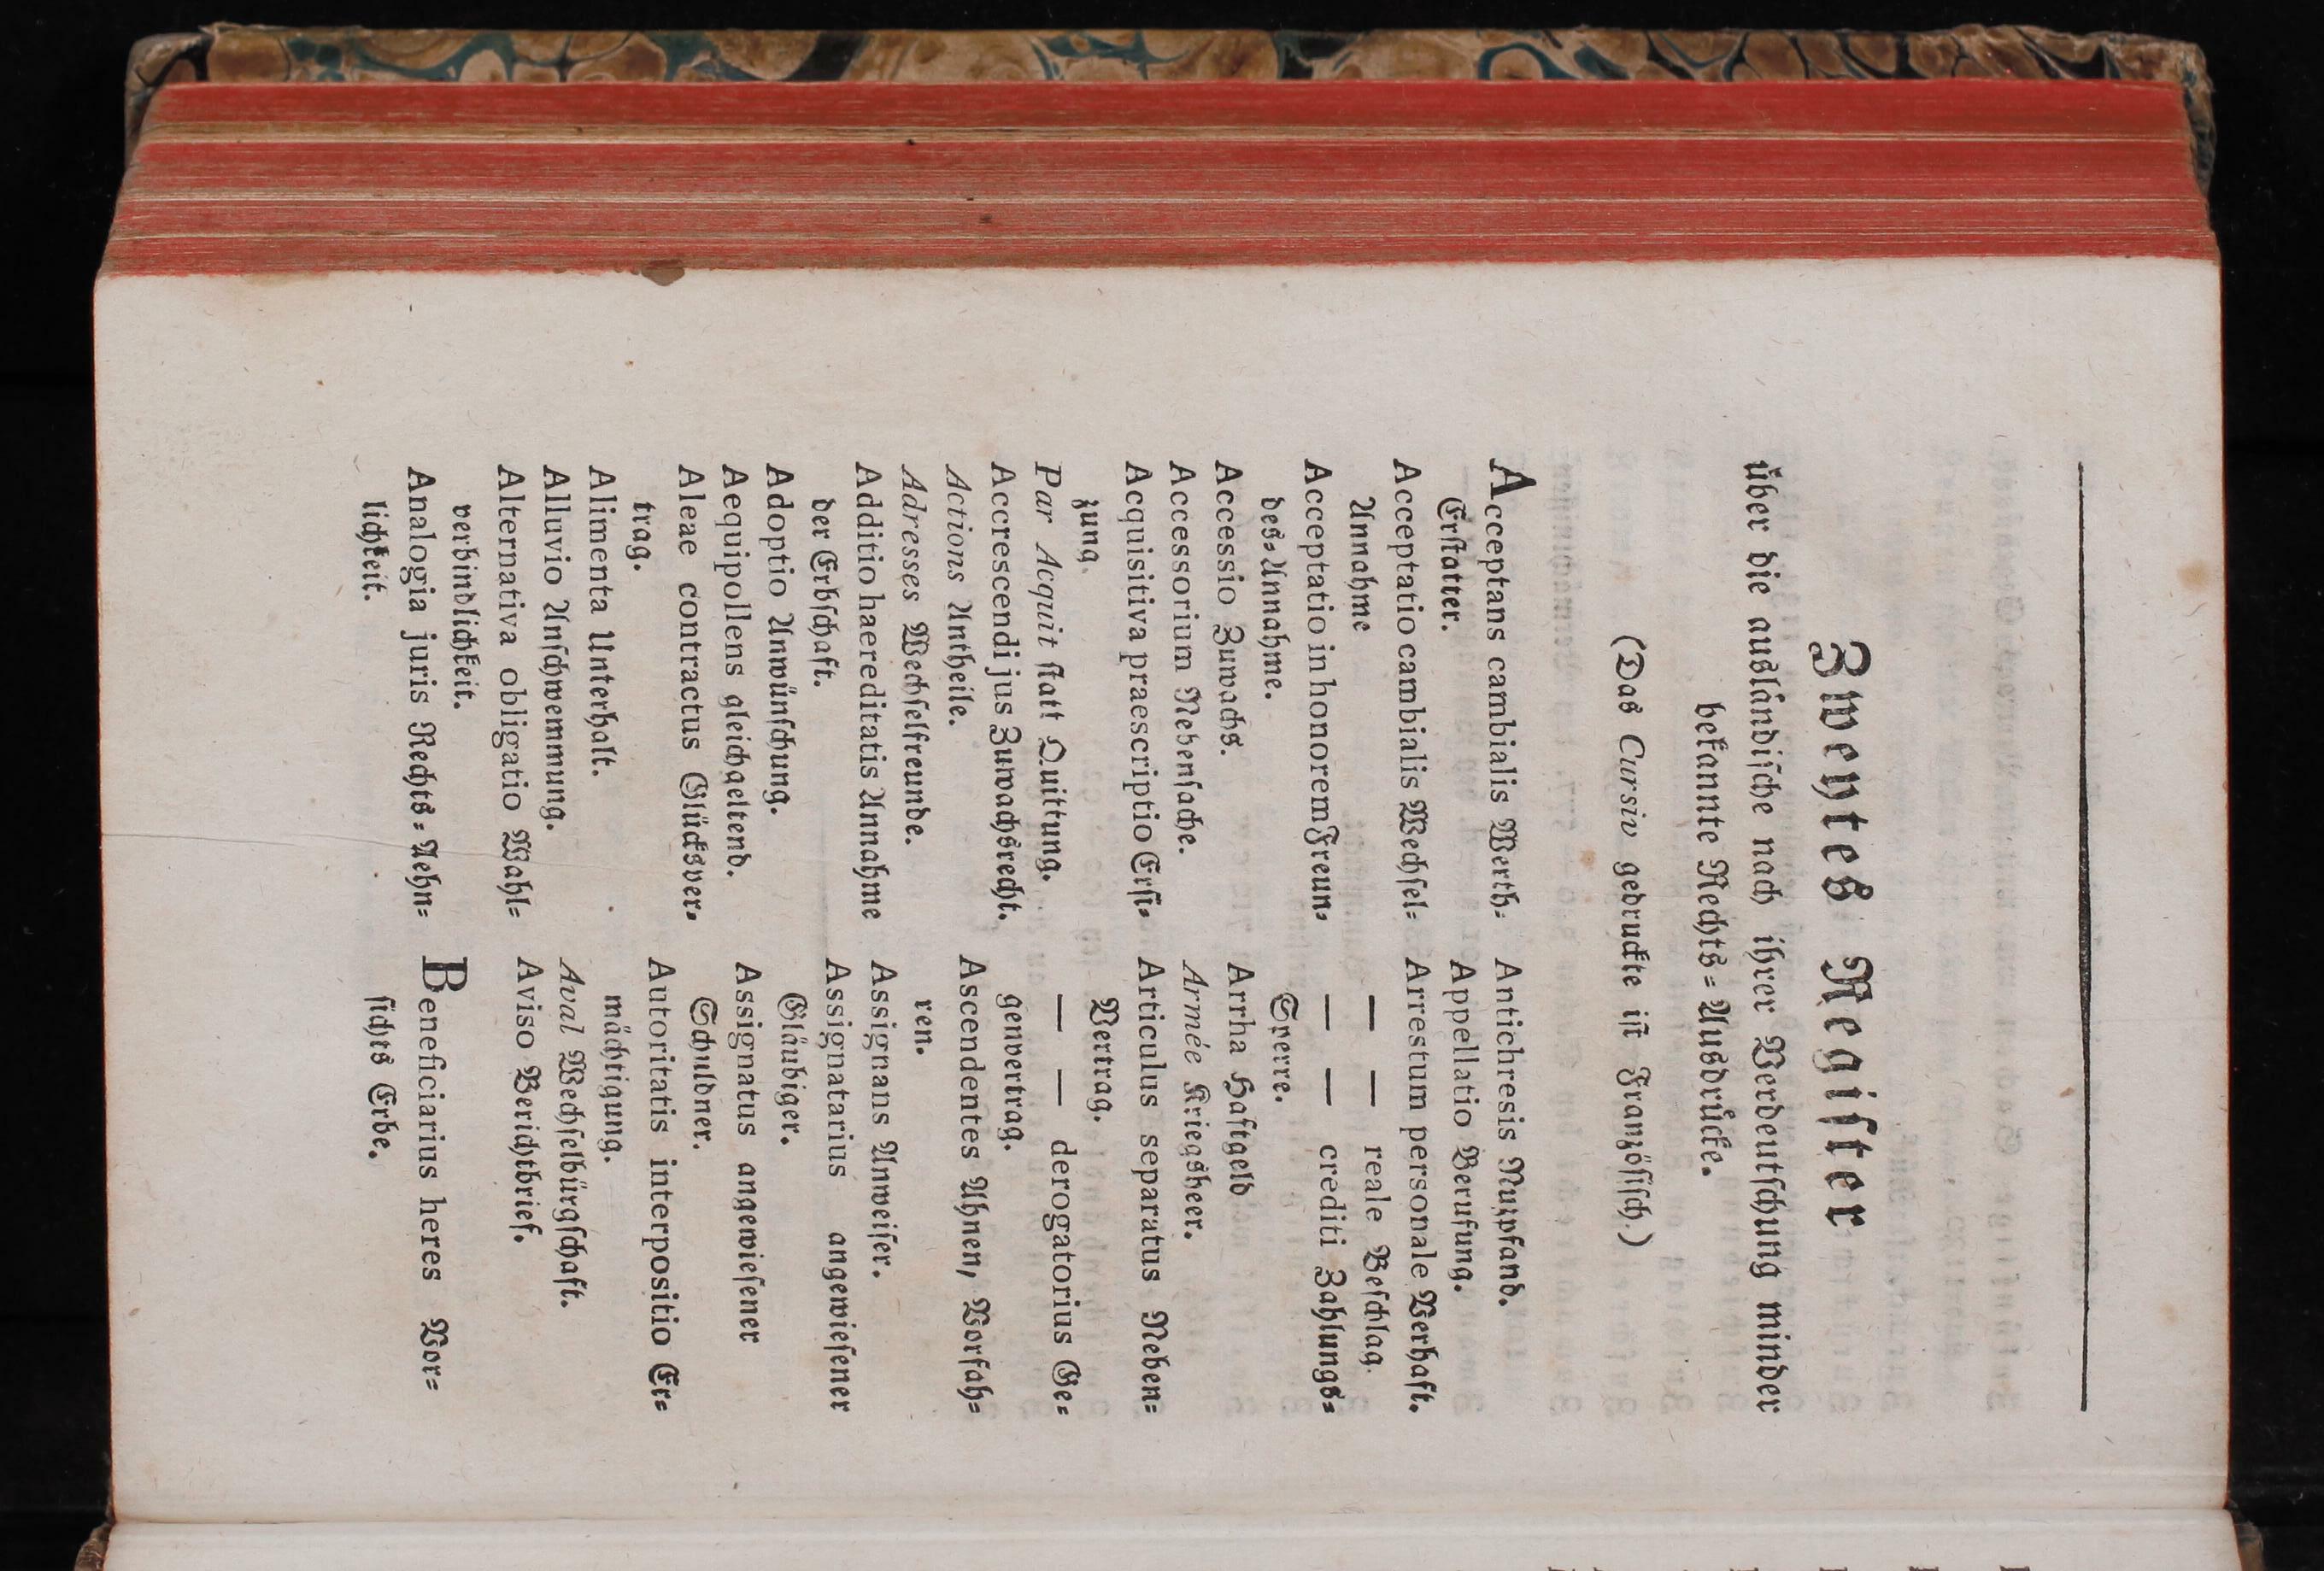 Zweytes Register
über die ausländische nach ihrer Verdeutschung minder
bekannte Rechts=Ausdrücke.
(Das Cursiv gedruckte ist Französisch.)
Acceptans cambialis Werth=
Erstatter.
Acceptatio cambialis Wechsel=
Annahme
Acceptatio in honorem Freun=
des=Annahme.
Accessio Zuwachs.
Accessorium Nebensache.
Acquisitiva praescriptio Ersi=
zung.
Par Acquit statt Quittung.
Accrescendi jus Zuwachsrecht.
Actions Antheile.
Adresses Wechselfreunde.
Additio haereditatis Annahme
der Erbschaft.
Adoptio Anwünschung.
Aequipollens gleichgeltend.
Aleae contractus Glücksver=
trag.
Alimenta Unterhalt.
Alluvio Anschwemmung.
Alternativa obligatio Wahl=
verbindlichkeit.
Analogia juris Rechts=Aehn=
lichkeit.
Antichresis Nuzpfand.
Appellatio Berufung.
Arrestum personale Verhaft.
— — reale Beschlag.
— — crediti Zahlungs=
Sperre.
Arrha Haftgeld
Armée Kriegsheer.
Articulus separatus Neben=
Vertrag.
— — derogatorius Ge=
genvertrag.
Ascendentes Ahnen, Vorfah=
ren.
Assignans Anweiser.
Assignatarius angewiesener
Gläubiger.
Assignatus angewiesener
Schuldner.
Autoritatis interpositio Er=
mächtigung.
Aval Wechselbürgschaft.
Aviso Berichtbrief.
Beneficiarius heres Vor=
sichts Erbe.